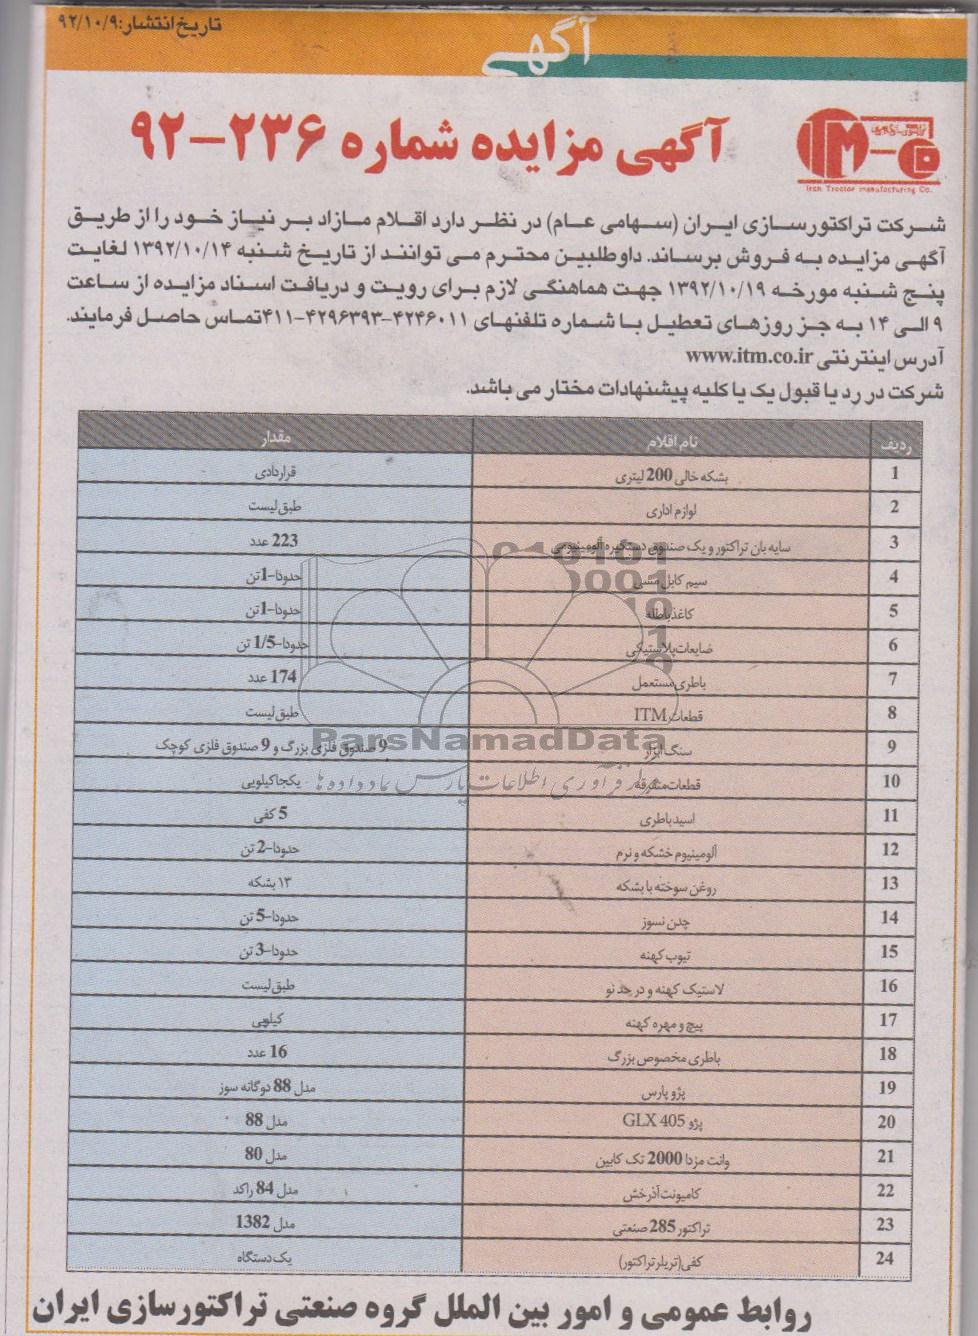 تاریخ انتشار: ۹۲/۱۰/۹
آگهی
آگهی مزایده شماره ۲۳۶-۹۲
ITM-CO
Iran Tractor manufacturing Co.
شرکت تراکتورسازی ایران (سهامی عام) در نظر دارد اقلام مازاد بر نیاز خود را از طریق
آگهی مزایده به فروش برساند. داوطلبین محترم می توانند از تاریخ شنبه ۱۳۹۲/۱۰/۱۴ لغایت
پنج شنبه مورخه ۱۳۹۲/۱۰/۱۹ جهت هماهنگی لازم برای رویت و دریافت اسناد مزایده از ساعت
۹ الی ۱۴ به جز روزهای تعطیل با شماره تلفنهای ۴۲۴۶۰۱۱-۴۲۹۶۳۹۳-۰۴۱۱ تماس حاصل فرمایند.
آدرس اینترنتی www.itm.co.ir
شرکت در رد یا قبول یک یا کلیه پیشنهادات مختار می باشد.
ردیف نام اقلام مقدار
1 بشکه خالی 200 لیتری قراردادی
2 لوازم اداری طبق لیست
3 سایه بان تراکتور و یک صندوق دستگیره آلومینیومی 223 عدد
4 سیم کابل مسی حدودا-1تن
5 کاغذ باطله حدودا-1تن
6 ضایعات پلاستیکی حدودا-1/5 تن
7 باطری مستعمل 174 عدد
8 قطعات ITM طبق لیست
9 سنگ ابزار 9 صندوق فلزی بزرگ و 9 صندوق فلزی کوچک
10 قطعات متفرقه یکجا کیلویی
11 اسید باطری 5 کفی
12 آلومینیوم خشکه و نرم حدودا-2 تن
13 روغن سوخته با بشکه ۱۳ بشکه
14 چدن نسوز حدودا-5 تن
15 تیوب کهنه حدودا-3 تن
16 لاستیک کهنه و در حد نو طبق لیست
17 پیچ و مهره کهنه کیلویی
18 باطری مخصوص بزرگ 16 عدد
19 پژو پارس مدل 88 دوگانه سوز
20 پژو 405 GLX مدل 88
21 وانت مزدا 2000 تک کابین مدل 80
22 کامیونت آذرخش مدل 84 راکد
23 تراکتور 285 صنعتی مدل 1382
24 کفی(تریلر تراکتور) یک دستگاه
ParsNamadData
فرآوری اطلاعات پارس نماد داده ها
روابط عمومی و امور بین الملل گروه صنعتی تراکتورسازی ایران